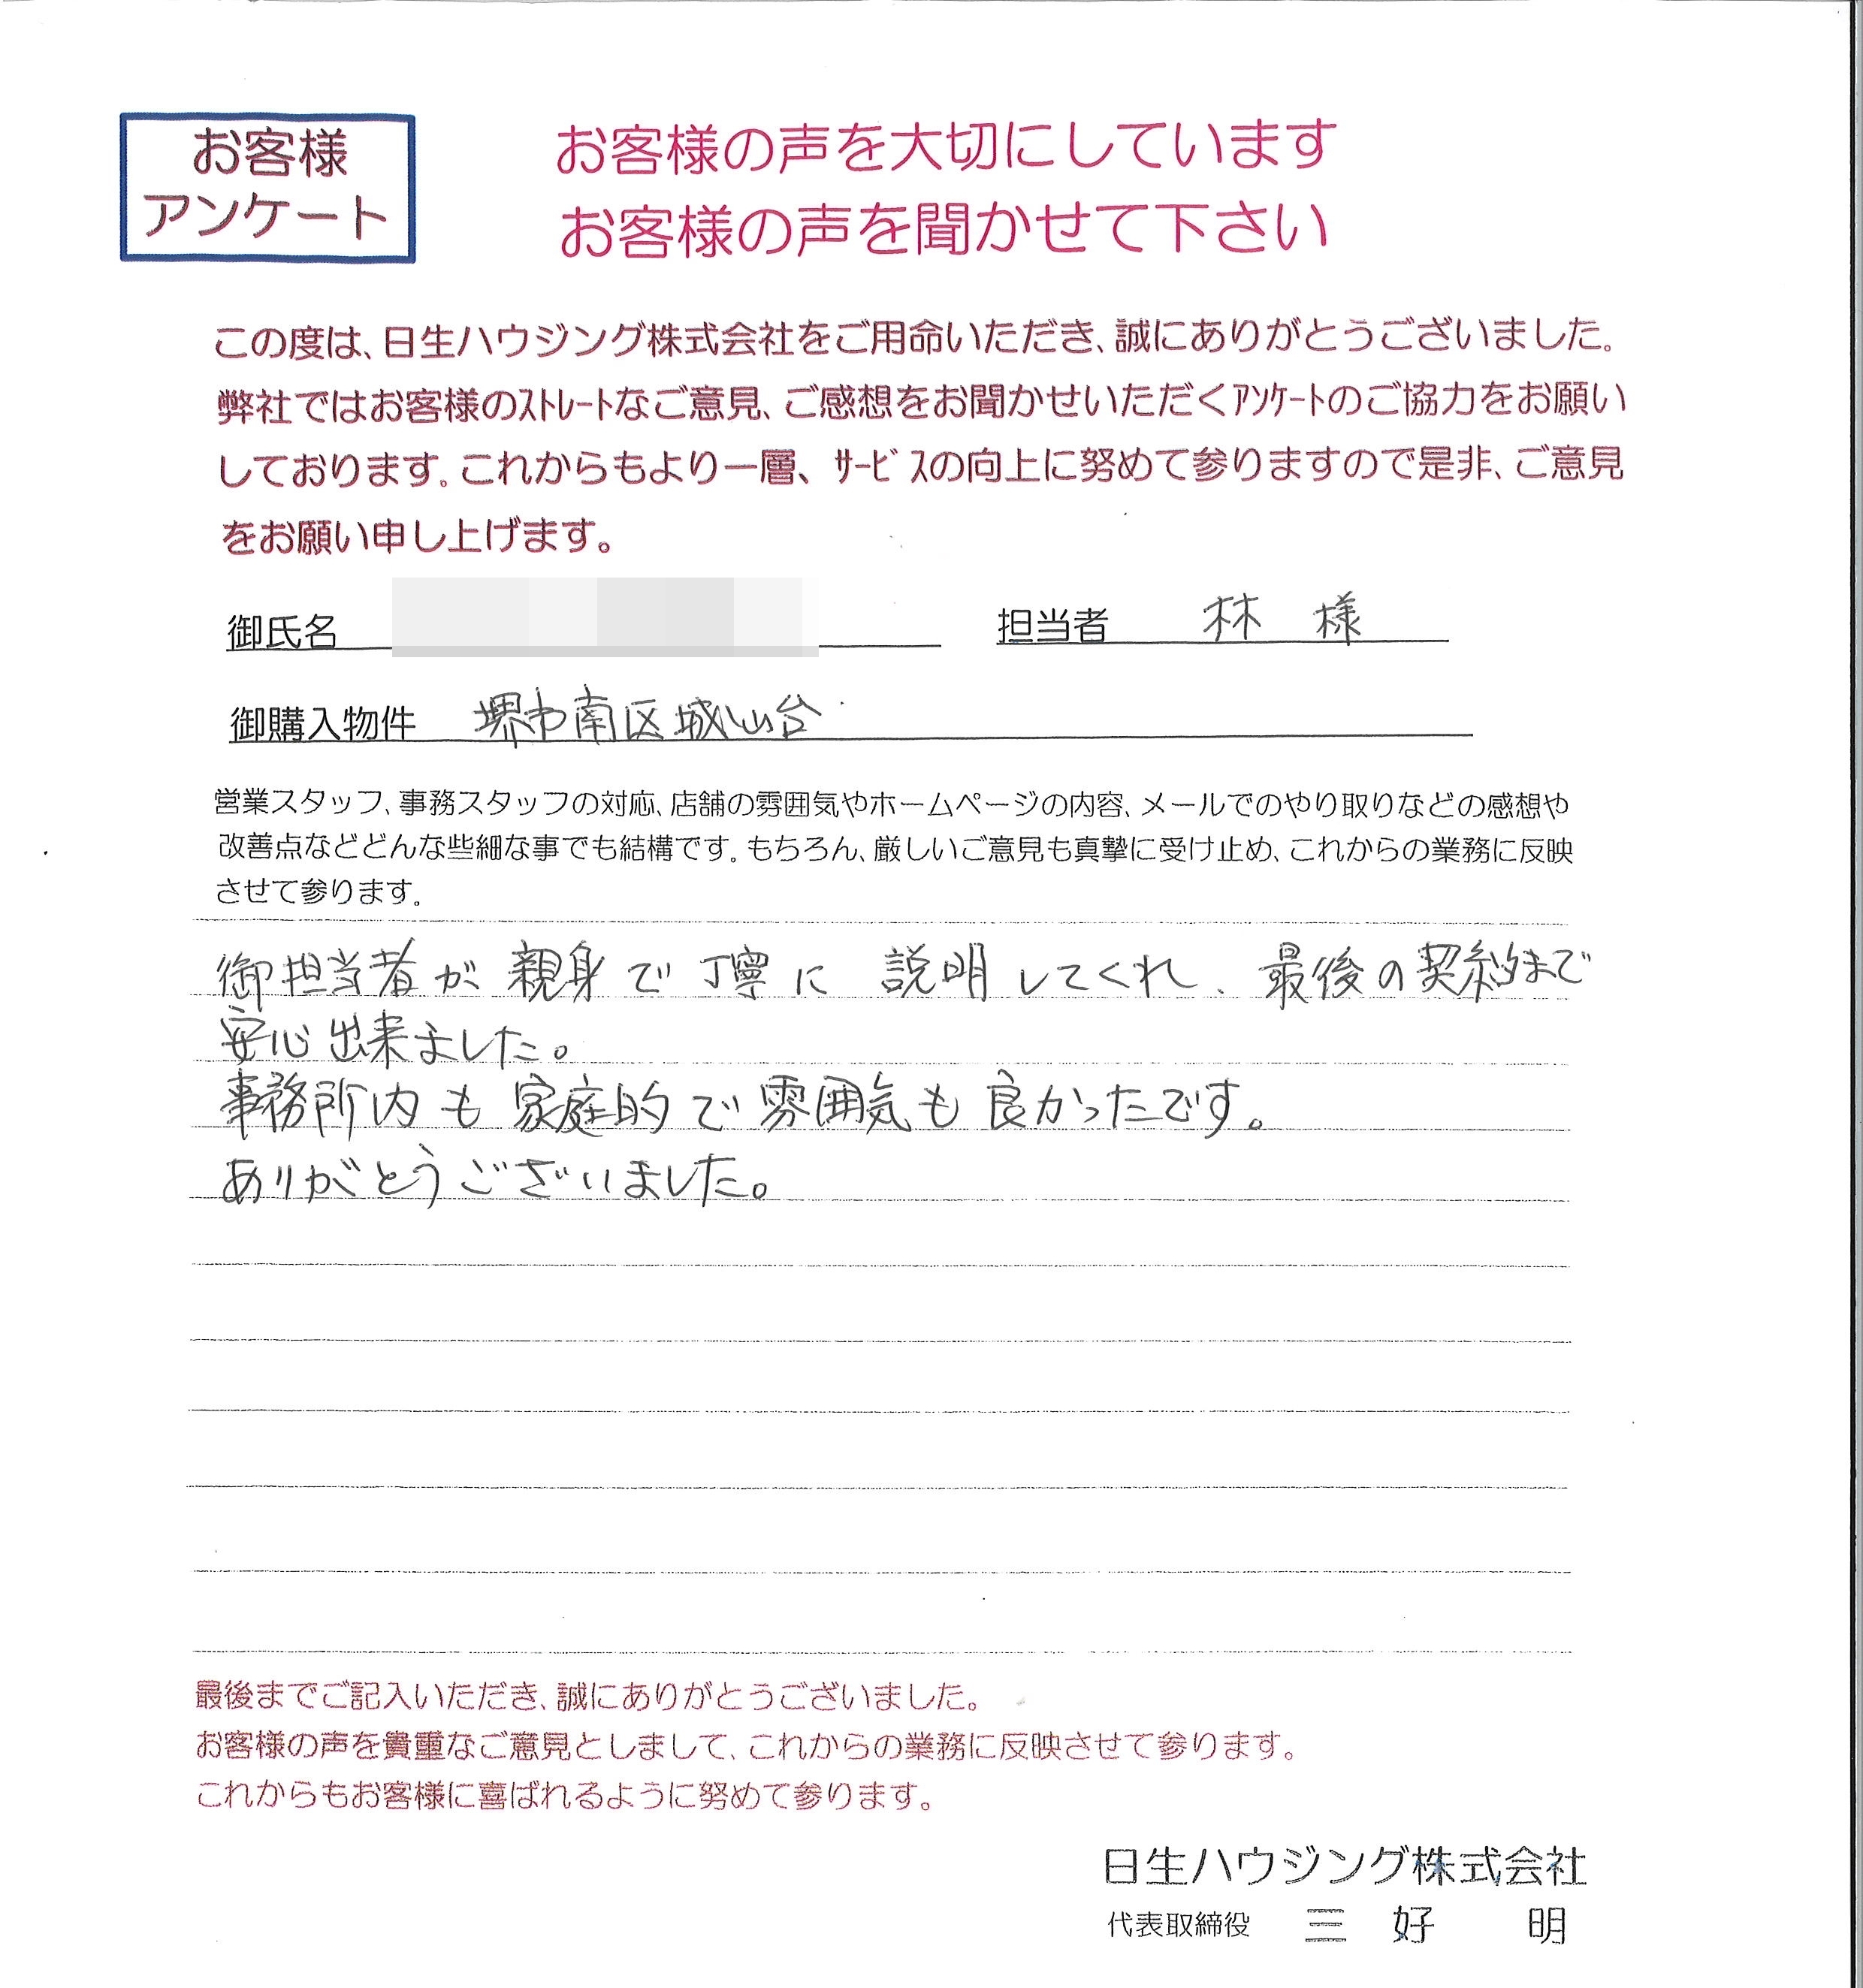 お客様
アンケート
お客様の声を大切にしています
お客様の声を聞かせて下さい
この度は、日生ハウジング株式会社をご用命いただき、誠にありがとうございました。
弊社ではお客様のｽﾄﾚｰﾄなご意見、ご感想をお聞かせいただくｱﾝｹｰﾄのご協力をお願い
しております。これからもより一層、ｻｰﾋﾞｽの向上に努めて参りますので是非、ご意見
をお願い申し上げます。
御氏名 担当者 林 様
御購入物件 堺市南区城山台
営業スタッフ、事務スタッフの対応、店舗の雰囲気やホームページの内容、メールでのやり取りなどの感想や
改善点などどんな些細な事でも結構です。もちろん、厳しいご意見も真摯に受け止め、これからの業務に反映
させて参ります。
御担当者が親身で丁寧に説明してくれ、最後の契約まで
安心出来ました。
事務所内も家庭的で雰囲気も良かったです。
ありがとうございました。
最後までご記入いただき、誠にありがとうございました。
お客様の声を貴重なご意見としまして、これからの業務に反映させて参ります。
これからもお客様に喜ばれるように努めて参ります。
日生ハウジング株式会社
代表取締役 三好 明